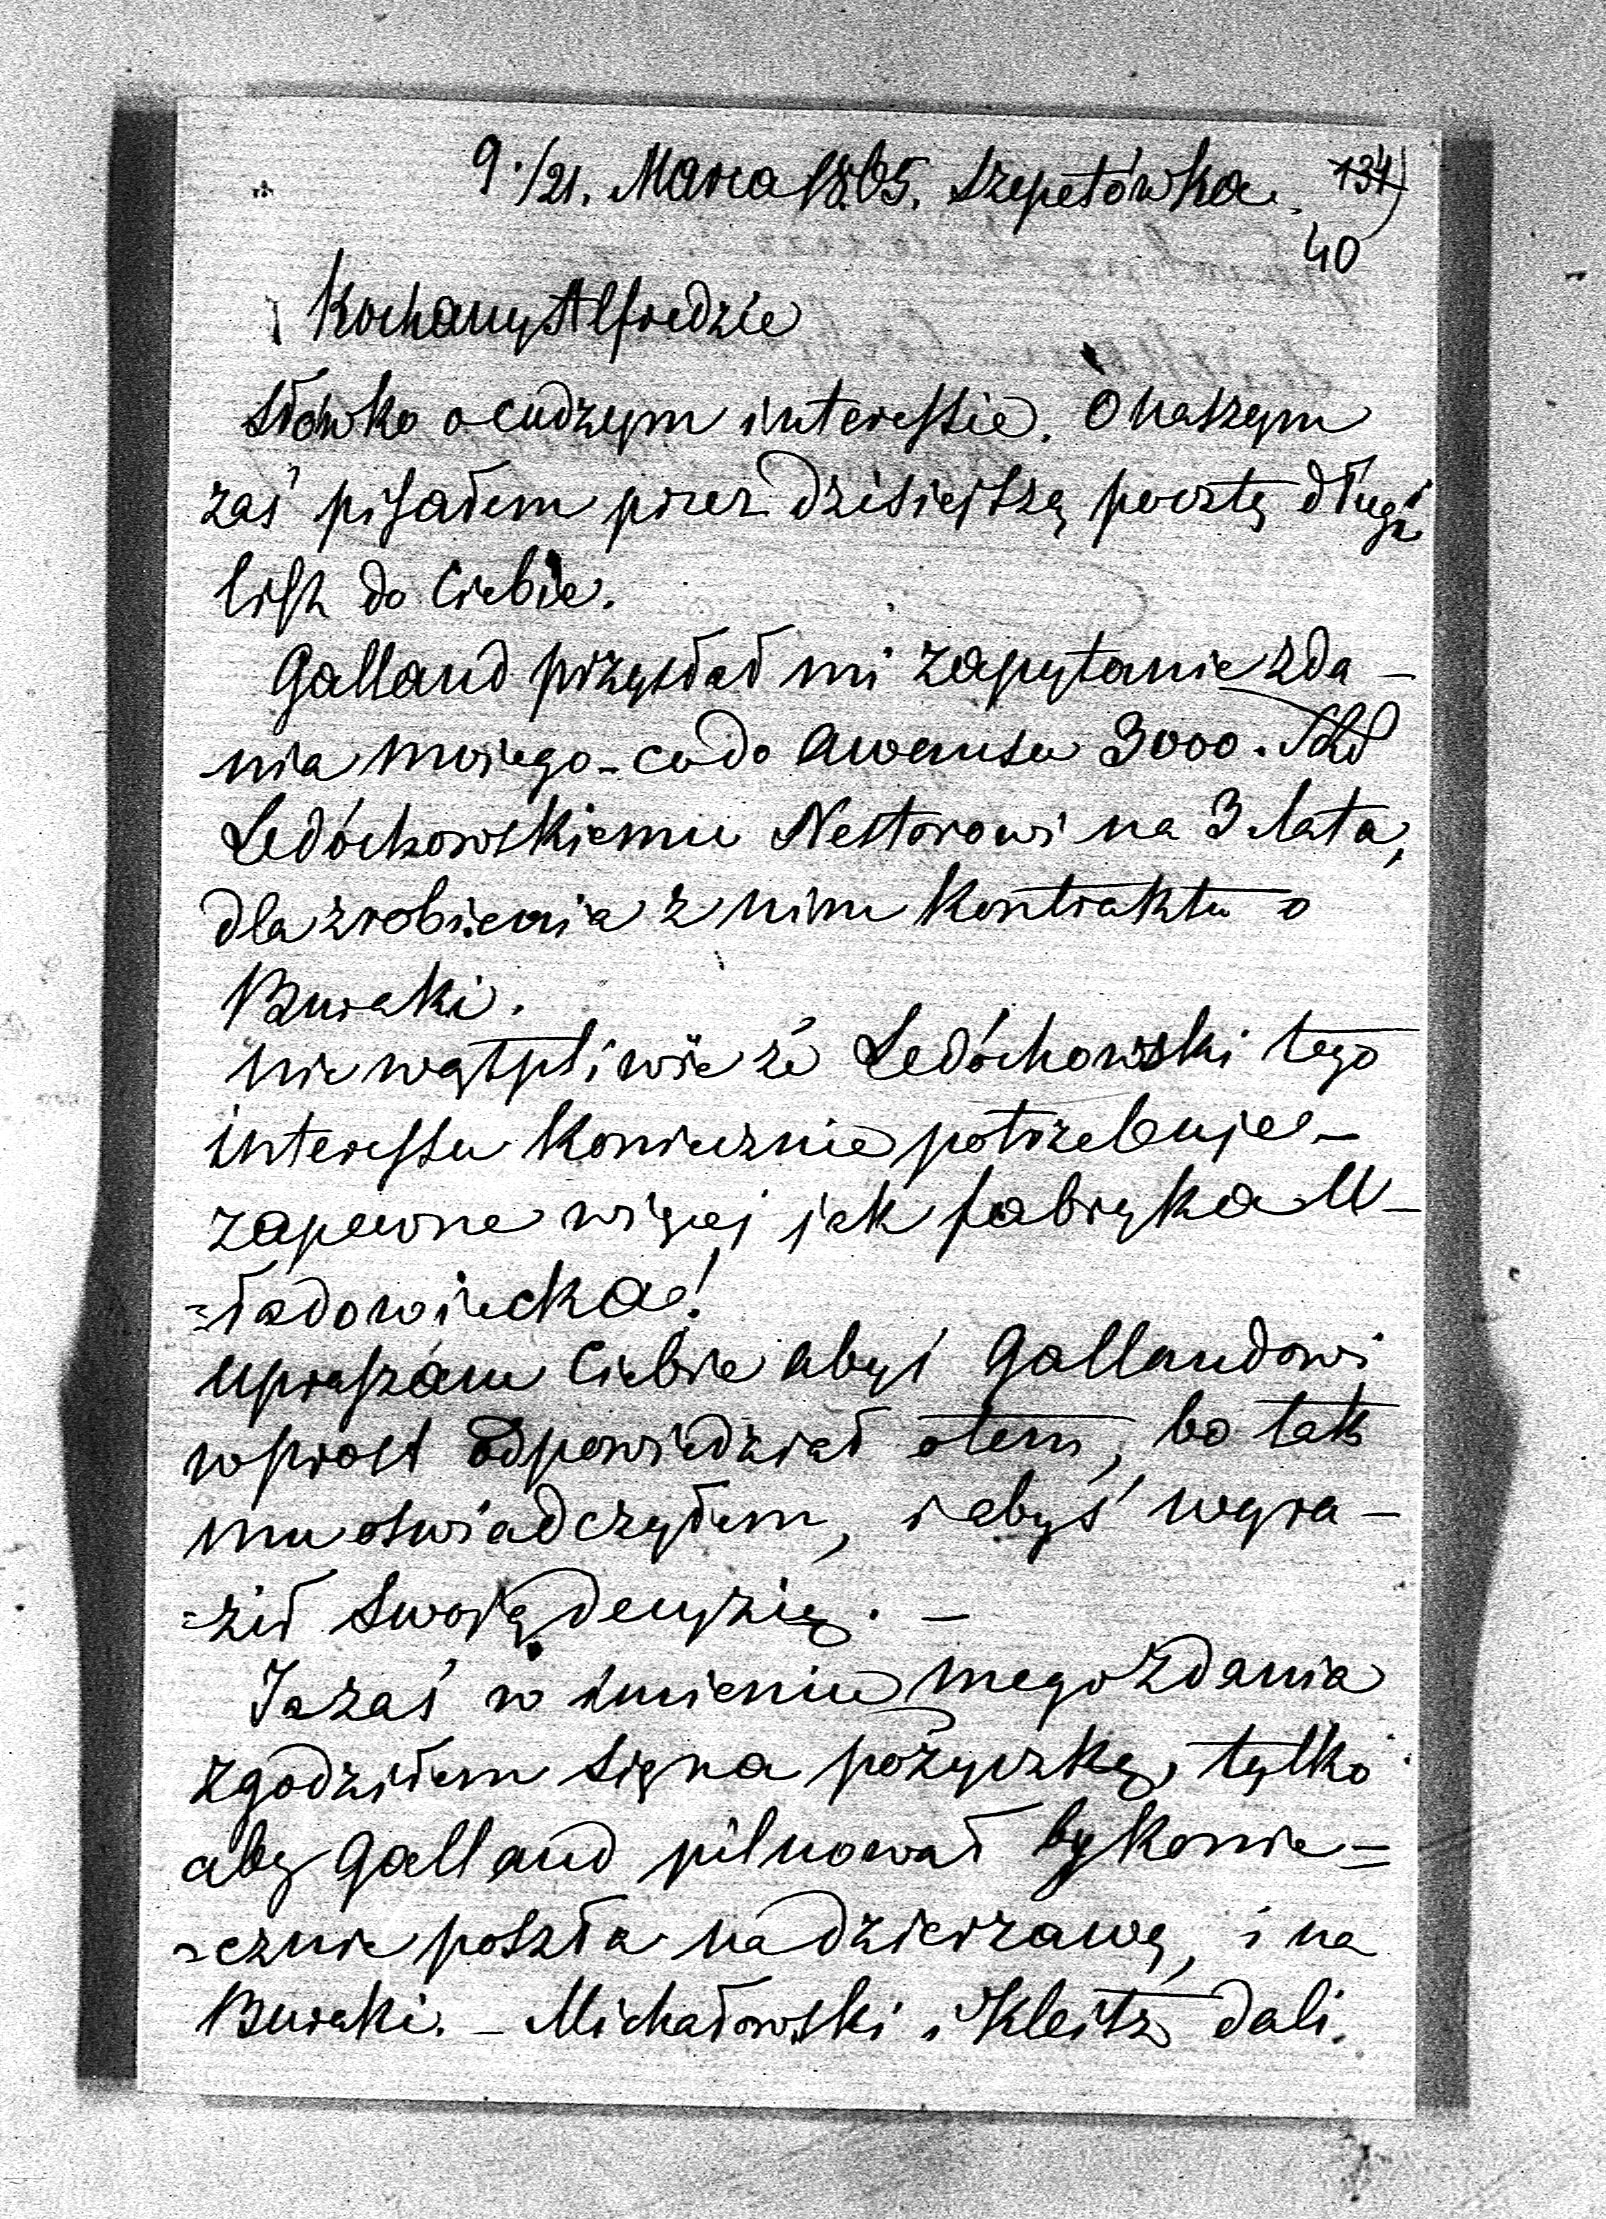 9./21. Marca 1865. Szepetówka. 134)
40
Kochany Alfredzie
Słówko o cudzym interessie. O naszym
zaś pisałem przez dzisiejszą pocztę długi
list do Ciebie.
Galland przysłał mi zapytanie zda-
nia mojego - co do awansu 3000.
Ledóchowskiemu Nestorowi na 3 lata,
dla zrobienia z nim kontraktu o
Buraki.
Niewątpliwie że Ledóchowski tego
interessu koniecznie potrzebuje -
zapewne więcej jak fabryka W-
=ładowiecka!
Upraszam Ciebie abyś Gallandowi
wprost odpowiedział o tem, bo tak
mu oswiadczyłem, i abyś wyra-
=ził swoją decyzię. -
Ja zaś w imieniu mego zdania
zgodziłem się na pożyczkę, tylko
aby Galland pilnował by konie=
=cznie poszła na dzierżawę, i na
Buraki. - Michałowski i Kleitz dali.